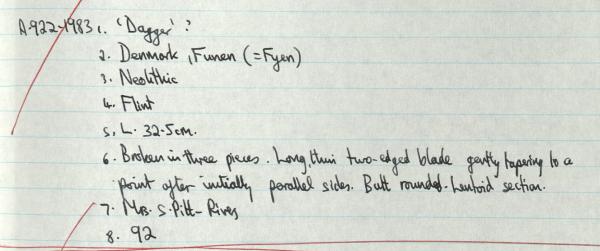 A.922-1983 1. 'Dagger' ?
2. Denmark, Funen (=Fyen)
3. Neolithic
4. Flint
5. L. 32.5cm.
6. Broken in three pieces. Long, thin two-edged blade gently tapering to a
point after initially parallel sides. Butt rounded. Lentoid section.
7. Mrs. S. Pitt-Rivers
8. 92